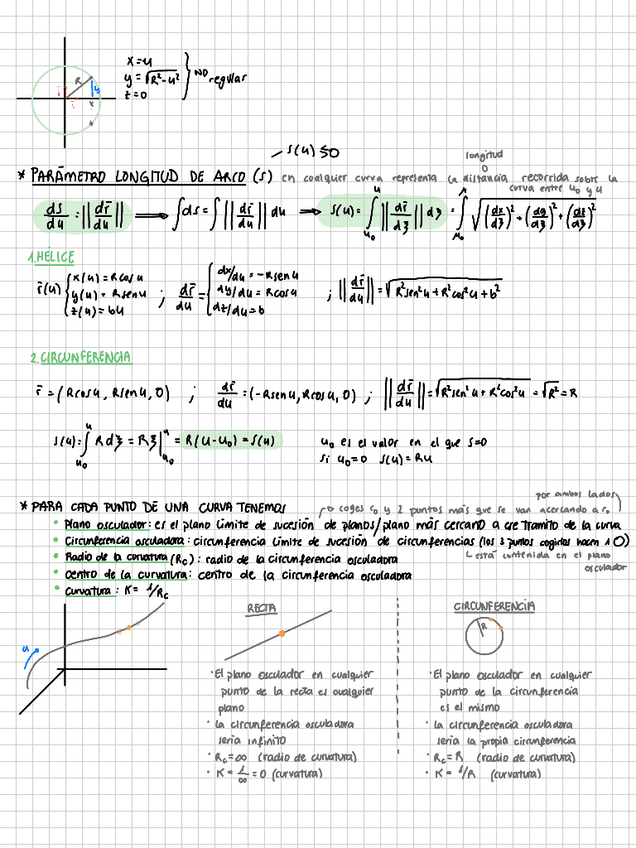 x = u
y = √R² - u²
z = 0
NO regular
R
y
s(u) ≶ 0
* PARÁMETRO LONGITUD DE ARCO (s) en cualquier curva representa la distancia recorrida sobre la
longitud
O
curva entre u₀ y u
ds/du = ||dr̄/du|| ⟹ ∫ds = ∫||dr̄/du|| du ⟹ s(u) = ∫ᵤ₀ᵘ ||dr̄/dξ|| dξ = ∫ᵤ₀ᵘ √(dx/dξ)² + (dy/dξ)² + (dz/dξ)²
1. HÉLICE
r̄(u) { x(u) = R cos u ; y(u) = R sen u ; z(u) = bu ; dr̄/du = { dx/du = -R sen u ; dy/du = R cos u ; dz/du = b ; ||dr̄/du|| = √R² sen² u + R² cos² u + b²
2. CIRCUNFERENCIA
r̄ = (R cos u, R sen u, 0) ; dr̄/du = (-R sen u, R cos u, 0) ; ||dr̄/du|| = √R² sen² u + R² cos² u = √R² = R
s(u) = ∫ᵤ₀ᵘ R dξ = Rξ|ᵤ₀ᵘ = R(u - u₀) = s(u)
u₀ es el valor en el que s=0
si u₀ = 0 s(u) = Ru
por ambos lados
* PARA CADA PUNTO DE UNA CURVA TENEMOS
coges r₀ y 2 puntos más que se van acercando a r₀
• Plano osculador: es el plano límite de sucesión de planos/plano más cercano a ese tramito de la curva
• Circunferencia osculadora: circunferencia límite de sucesión de circunferencias (los 3 puntos cogidos hacen 1 O)
• Radio de la curvatura (Rc): radio de la circunferencia osculadora
está contenida en el plano osculador
• Centro de la curvatura: centro de la circunferencia osculadora
• Curvatura: K = 1/Rc
u
RECTA
• El plano osculador en cualquier
punto de la recta es cualquier
plano
• La circunferencia osculadora
sería infinito
• Rc = ∞ (radio de curvatura)
• K = 1/∞ = 0 (curvatura)
CIRCUNFERENCIA
R
• El plano osculador en cualquier
punto de la circunferencia
es el mismo
• La circunferencia osculadora
sería la propia circunferencia
• Rc = R (radio de curvatura)
• K = 1/R (curvatura)